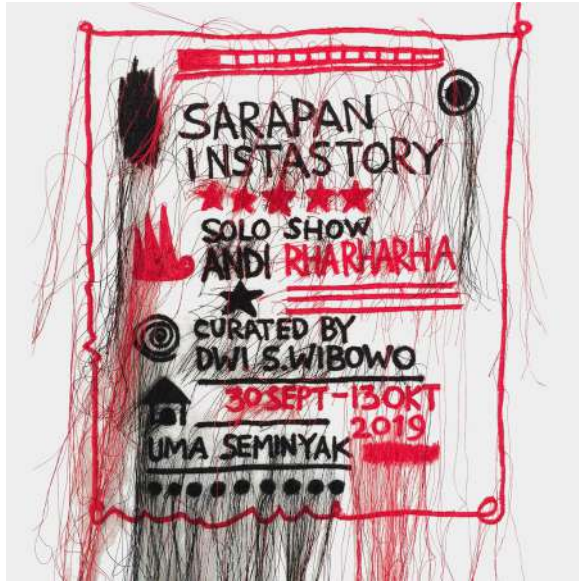 SARAPAN
INSTASTORY
SOLO SHOW
ANDI RHARHARHA
CURATED BY
DWI S.WIBOWO
30SEPT-13OKT
2019
UMA SEMINYAK